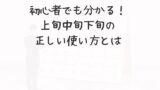 初心者でも分かる！
上旬中旬下旬の
正しい使い方とは